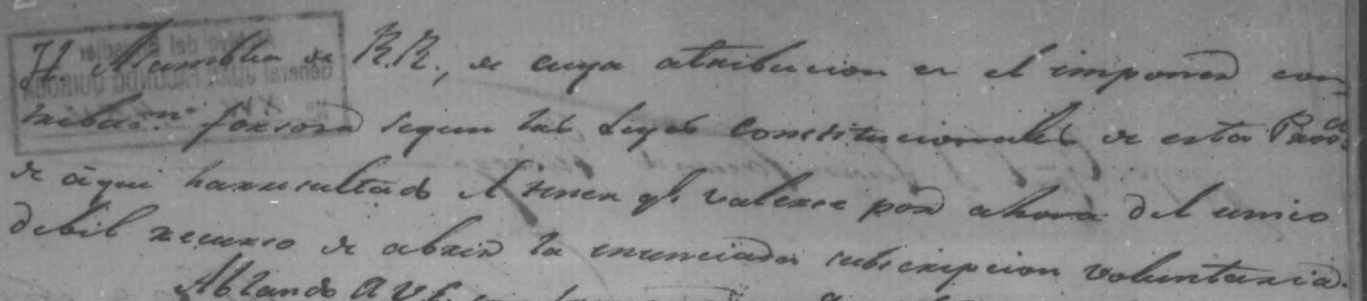 H. Asamblea de R.R., de cuya atribucion es el imponer con
tribucn. forsosa segun las Leyes Constitucionales de esta Prova.
de aqui ha resultado el tener qe. valerse por ahora del unico
debil recurso de abrir la enunciada subscripcion voluntaria.
Ablando a V.E.